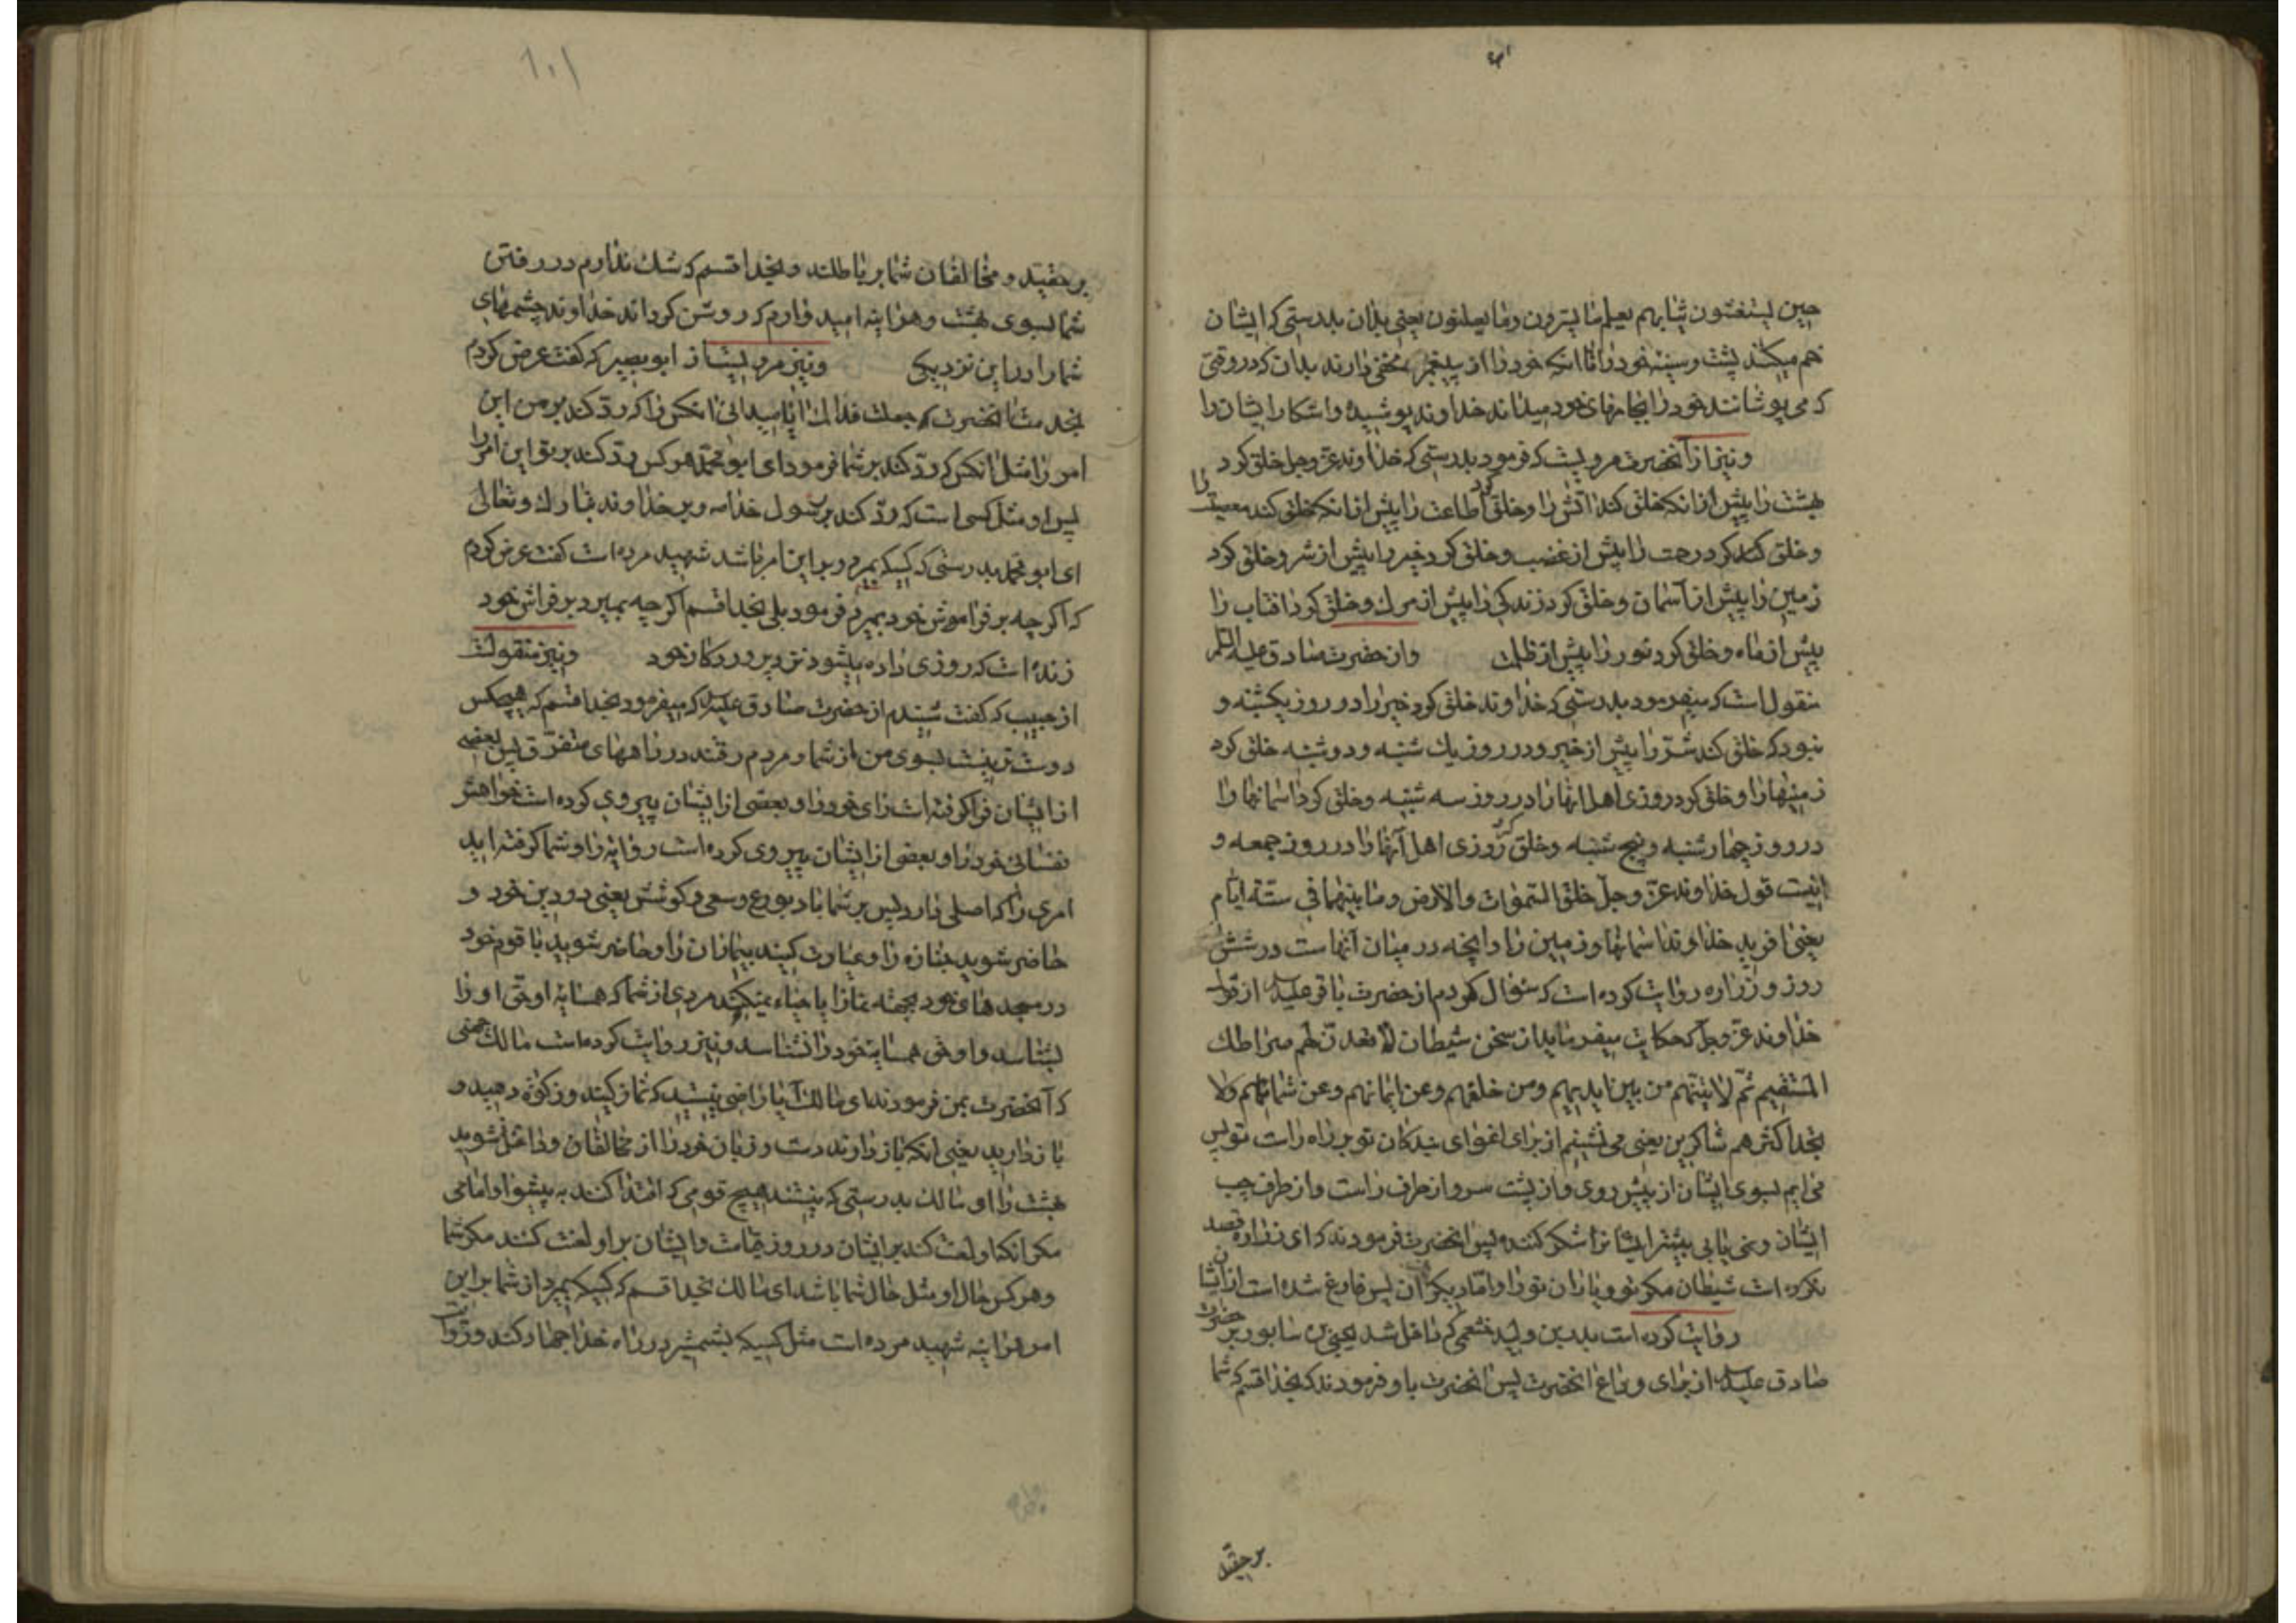 حین یستغشون ثیابهم یعلم ما یسرون وما یعلنون یعنی بدان بدرستی که ایشان
خم میکنند پشت وسینه خود را تا انکه خود را از پیغمبر مخفی دارند بدان که در وقتی
که می پوشانند خود را بجامهای خود میداند خداوند پوشیده واشکار ایشان را
ونیز از آنحضرت مرویست که فرمود بدرستی که خداوند عز وجل خلق کرد
بهشت را پیش از انکه خلق کند اتش را وخلق کرد طاعت را پیش از انکه خلق کند معصیت را
وخلق کرد رحمت را پیش از غضب وخلق کرد خیر را پیش از شر وخلق کرد
زمین را پیش از آسمان وخلق کرد زندکی را پیش از مرك وخلق کرد افتاب را
پیش از ماه وخلق کرد نور را پیش از ظلمت واز حضرت صادق علیه السلم
منقول است که میفرمود بدرستی که خداوند خلق کرد خیر را در روز یکشنبه و
نبود که خلق کند شر را پیش از خیر ودر روز یك شنبه ودوشنبه خلق کرد
زمینها را وخلق کرد روزی اهل انها را در روز سه شنبه وخلق کرد اسمانها را
در روز چهارشنبه وپنج شنبه وخلق کرد روزی اهل آنها را در روز جمعه و
اینست قول خداوند عز وجل خلق السموات والارض وما بینهما فی ستة ایام
یعنی افرید خداوند اسمانها وزمین را وانچه در میان آنهاست در شش
روز وزراره روایت کرده است که سؤال کردم از حضرت باقر علیه السلم از قول
خداوند عز وجل که حکایت میفرماید از سخن شیطان لاقعدن لهم صراطك
المستقیم ثم لاتینهم من بین ایدیهم ومن خلفهم وعن ایمانهم وعن شمائلهم ولا
تجد اکثرهم شاکرین یعنی می نشینم از برای اغوای بندکان تو بر راه راست تو پس
می ایم بسوی ایشان از پیش روی واز پشت سر واز طرف راست واز طرف چپ
ایشان ونمی یابی بیشتر ایشانرا شکر کننده پس انحضرت فرمودند که ای زراره قصد
نکرده است شیطان مکر تو ویاران تو را واما دیکران پس فارغ شده است از ایشان
روایت کرده است بدر بن ولید خثعمی که داخل شد یحیی بن سابور بر حضرت
صادق علیه السلم از برای وداع انحضرت پس انحضرت باو فرمودند که بخدا قسم که شما
برحقید
۱۰۱
برحقید ومخالفان شما بر باطلند وبخدا قسم که شك ندارم در رفتن
شما بسوی بهشت وهراینه امید دارم که روشن کرداند خداوند چشمهای
شما را در این نزدیکی ونیز مرویست از ابو بصیر که کفت عرض کردم
بخدمت انحضرت که جعلت فداك ایا میدانی انکس را که رد کند بر من این
امر را مثل انکس که رد کند بر شما فرمود ای ابو محمد هر کس رد کند بر تو این امر را
پس او مثل کسی است که رد کند بر رسول خدا ص وبر خداوند تبارك وتعالی
ای ابو محمد بدرستی که کسیکه بمیرد وبر این امر باشد شهید مرده است کفت عرض کردم
که اکرچه بر فراموش خود بمیرد فرمود بلی بخدا قسم اکرچه بمیرد بر فراش خود
زنده است که روزی داده میشود نزد پروردکار خود ونیز منقولست
از حبیب که کفت شنیدم از حضرت صادق علیه السلم که میفرمود بخدا قسم که هیچکس
دوست تر نیست بسوی من از شما ومردم رفتند در راههای متفرق پس بعضی
از ایشان فرا کرفته است رای خود را وبعضی از ایشان پیروی کرده است خواهش
نفسانی خود را وبعضی از ایشان پیروی کرده است روایة را وشما کرفته اید
امری را که اصلی دارد پس بر شما باد بورع وسعی وکوشش یعنی در دین خود و
حاضر شوید جنازه را وعیادت کنید بیماران را وحاضر شوید با قوم خود
در مسجدهای خود بجهة نماز ایا حیاء نمیکند مردی از شما که همسایه او حق او را
بشناسد واو حق همسایه خود را نشناسد ونیز روایت کرده است مالك جهنی
که آنحضرت بمن فرمودند ای مالك آیا راضی نیستید که نماز کنید وزکوة دهید و
باز دارید یعنی انکه باز دارند دست وزبان خود را از مخالفان وداخل شوید
بهشت را ای مالك بدرستی که نیستند هیچ قومی که اقتدا کنند به پیشوا وامامی
مکر انکه او لعنت کند بر ایشان در روز قیامت وایشان بر او لعنت کنند مکر شما
وهر کس حال او مثل حال شما باشد ای مالك بخدا قسم که کسیکه بمیرد از شما بر این
امر هراینه شهید مرده است مثل کسیکه بشمشیر در راه خدا جهاد کند وروایت